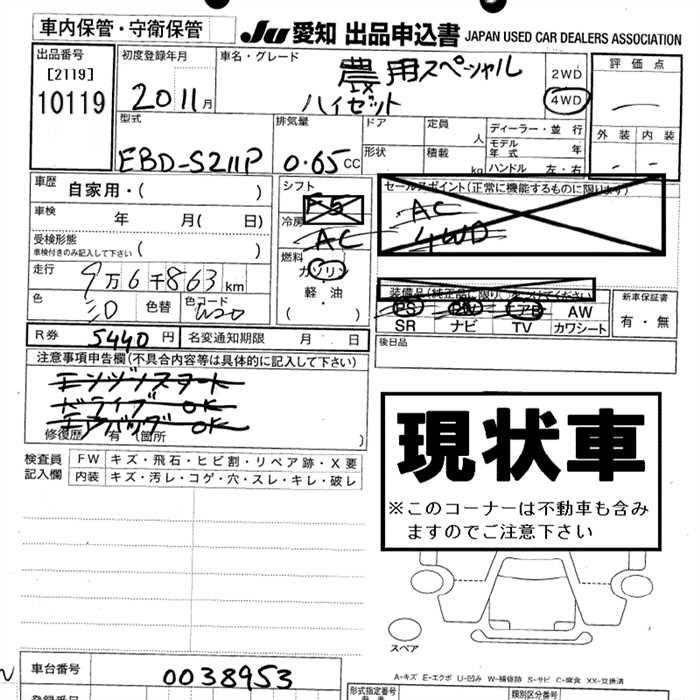 車内保管・守衛保管
Ju 愛知 出品申込書 JAPAN USED CAR DEALERS ASSOCIATION
出品番号
[2119]
10119
初度登録年月
2011月
車名・グレード
農用スペシャル
ハイゼット
2WD
4WD
評価点
外装 内装
型式
EBD-S211P
排気量
0.65 CC
ドア
形状
定員 人
積載 kg
ディーラー・並行
モデル年式 年
ハンドル 左・右
車歴 自家用・( )
車検 年 月( 日)
受検形態
車検付きのみ記入して下さい ( )
走行 9万6千863km
色
色替
色コード
W20
シフト
F5
冷房
AC
燃料
ガソリン
軽・油
( )
セールスポイント(正常に機能するものに限ります)
AC
4WD
装備品(純正品に限り、○をつけてください)
PS PW アB AW
SR ナビ TV カワシート
新車保証書
有・無
後日品
R券 5440円 名変通知期限 月 日
注意事項申告欄(不具合内容等は具体的に記入して下さい)
エンジンスタート
ドライブ OK
エアバッグ OK
修復歴 有 (箇所 )
検査員記入欄
FW キズ・飛石・ヒビ割・リペア跡・X要
内装 キズ・汚レ・コゲ・穴・スレ・キレ・破レ
現状車
※このコーナーは不動車も含み
ますのでご注意下さい
スペア
A-キズ E-エクボ U-凹み W-補修跡 S-サビ C-腐食 XX-交換済
車台番号
0038953
登録番号
型式指定番号
類別区分番号